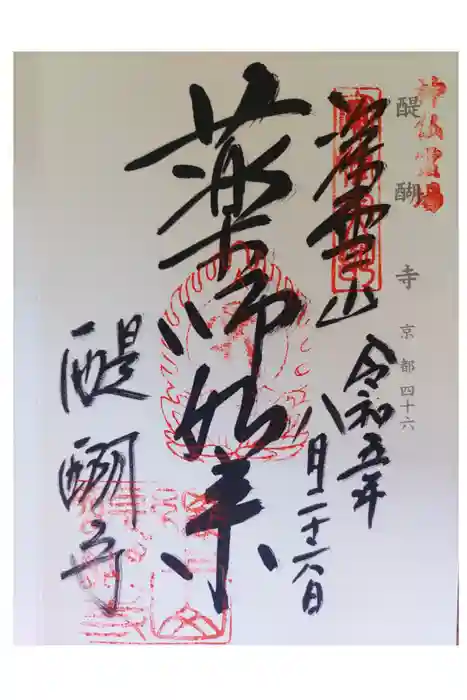 神仏霊場
醍醐寺 京都四十六
深雪山
令和五年
八月二十六日
薬師如来
醍醐寺